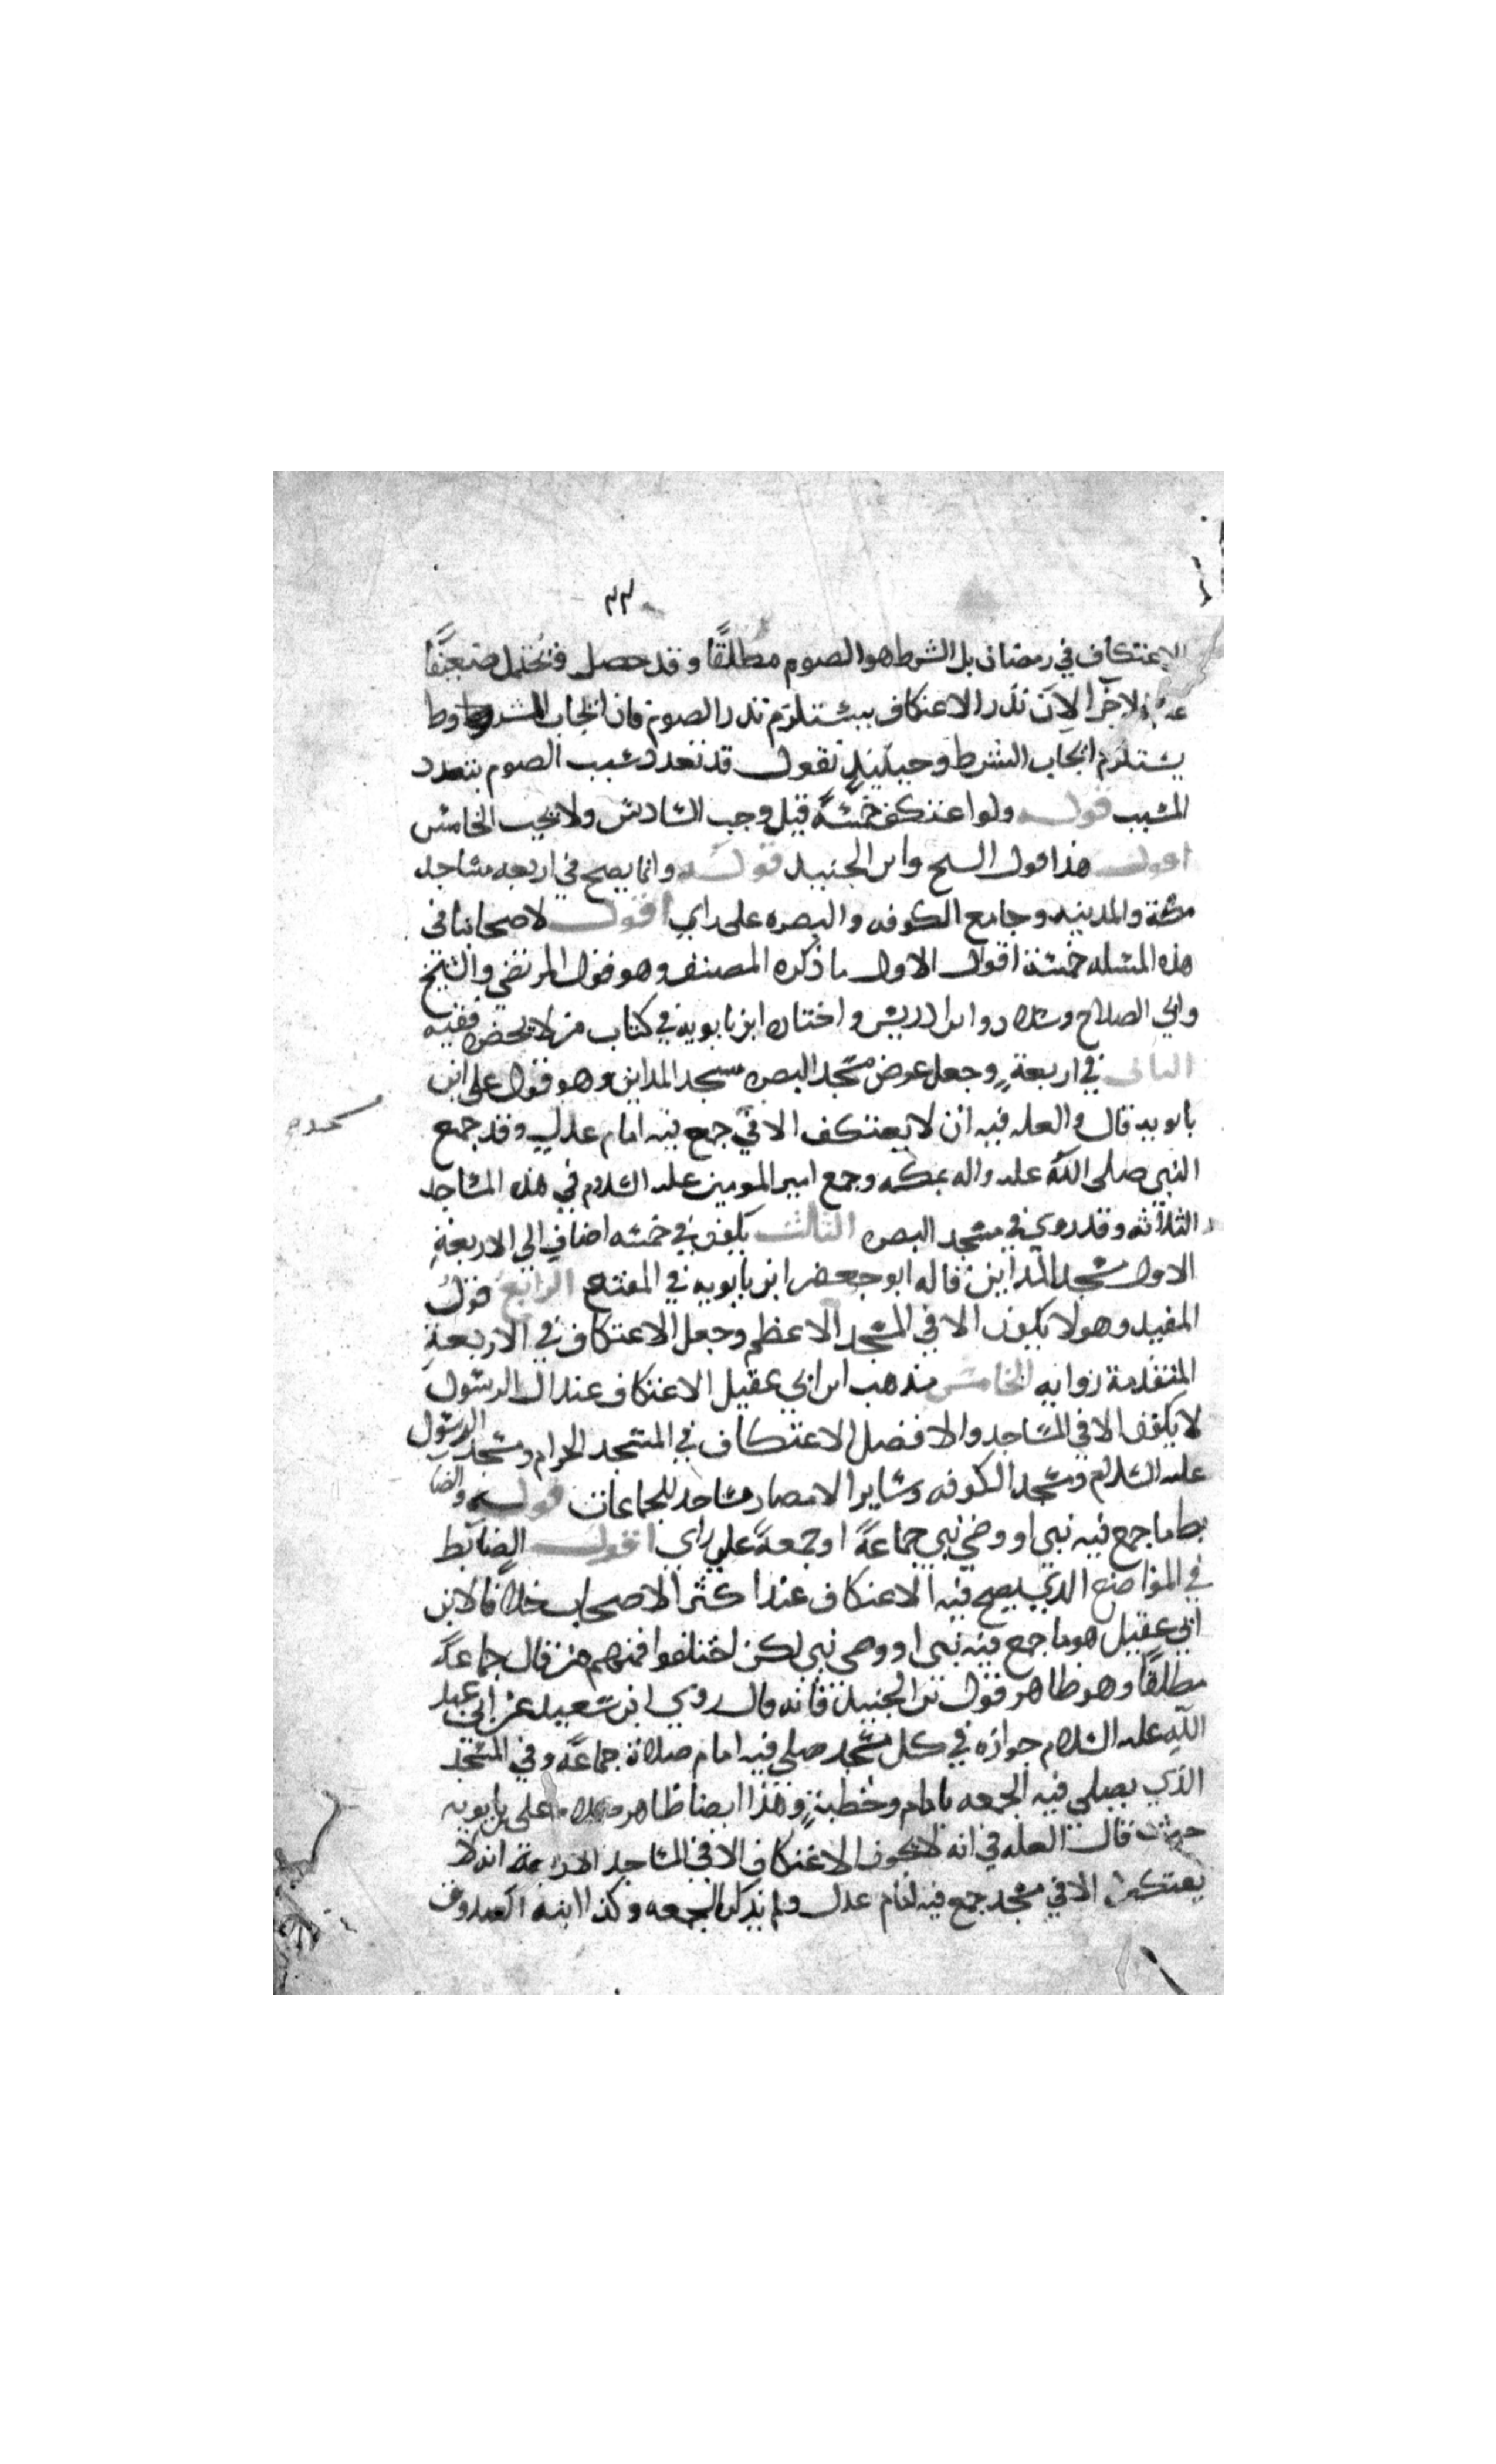 ٢٣
الاعتكاف في رمضان بل الشرط هو الصوم مطلقًا وقد حصل ويحتمل ضعيفًا
الاجزا لان نذر الاعتكاف يستلزم نذر الصوم فان ايجاب المشروط
يستلزم ايجاب الشرط وحينيذٍ نقول قد تعدد سبب الصوم بتعدد
المسبب قوله ولو اعتكف خمسةً قيل وجب السادس ولا يجب الخامس
اقول هذا قول الشيخ وابن الجنيد قوله وانما يصح في اربعه مساجد
مكة والمدينه وجامع الكوفه والبصره على راي اقول لاصحابنا في
هذه المسله خمسة اقوال الاول ما ذكره المصنف وهو قول المرتضى والشيخ
وابي الصلاح وسلار وابن ادريس واختاره ابن بابويه في كتاب من لا يحضره فقيه
الثاني في اربعةٍ وجعل عوض مسجد البصره مسجد المداين وهو قول علي ابن
بابويه قال والعله فيه ان لا يعتكف الا في جمع فيه امام عدلٍ وقد جمع
النبي صلى الله عليه واله بمكه وجمع امير المومنين عليه السلام في هذه المساجد
الثلاثه وقد روي في مسجد البصره الثالث يكون في خمسه اضاف الى الاربعةِ
الاول مسجد المداين قاله ابو جعفر ابن بابويه في المقنع الرابع قول
المفيد وهو لا يكون الا في المسجد الاعظم وجعل الاعتكاف في الاربعةِ
المتقدمة روايه الخامس مذهب ابن ابي عقيل الاعتكاف عند ال الرسول
لا يكون الا في المساجد والافضل الاعتكاف في المسجد الحرام ومسجد الرسول
عليه السلام ومسجد الكوفه وساير الامصار مساجد الجماعات قوله والضا
بط ما جمع فيه نبي او وصي نبي جماعةً او جمعةً على راي اقول الضابط
في المواضع الذي يصح فيه الاعتكاف عند اكثر الاصحاب خلافا لابن
ابي عقيل هو ما جمع فيه نبي او وصي نبي لكن اختلفوا فمنهم من قال جماعةً
مطلقًا وهو ظاهر قول بن الجنيد فانه قال روي ابن سعيد عن ابي عبد
الله عليه السلام جوازه في كل مسجد صلي فيه امام صلاة جماعةً وفي المسجد
الذي يصلي فيه الجمعه بامام وخطبةٍ وهذا ايضا ظاهر علي بن بابويه
حيث قال العله في انه لا يكون الاعتكاف الا في المساجد الاربعة انه لا
يعتكف الا في مسجد جمع فيه امام عدل ولم يذكر الجمعه وكذا ابنه الصدوق